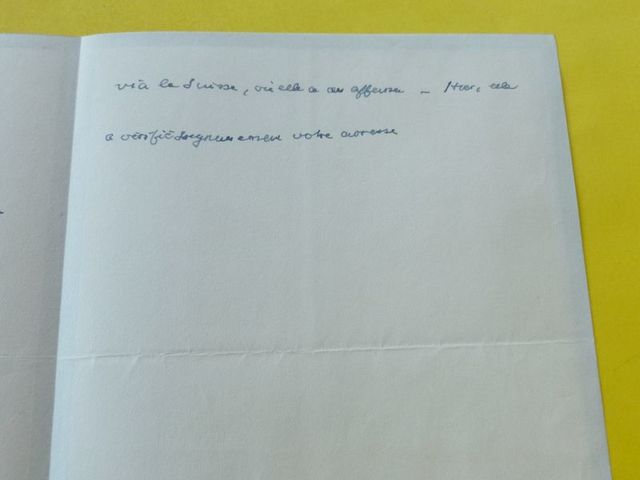 via la Suisse, où elle a des affaires – Hier, elle
a vérifié soigneusement votre adresse